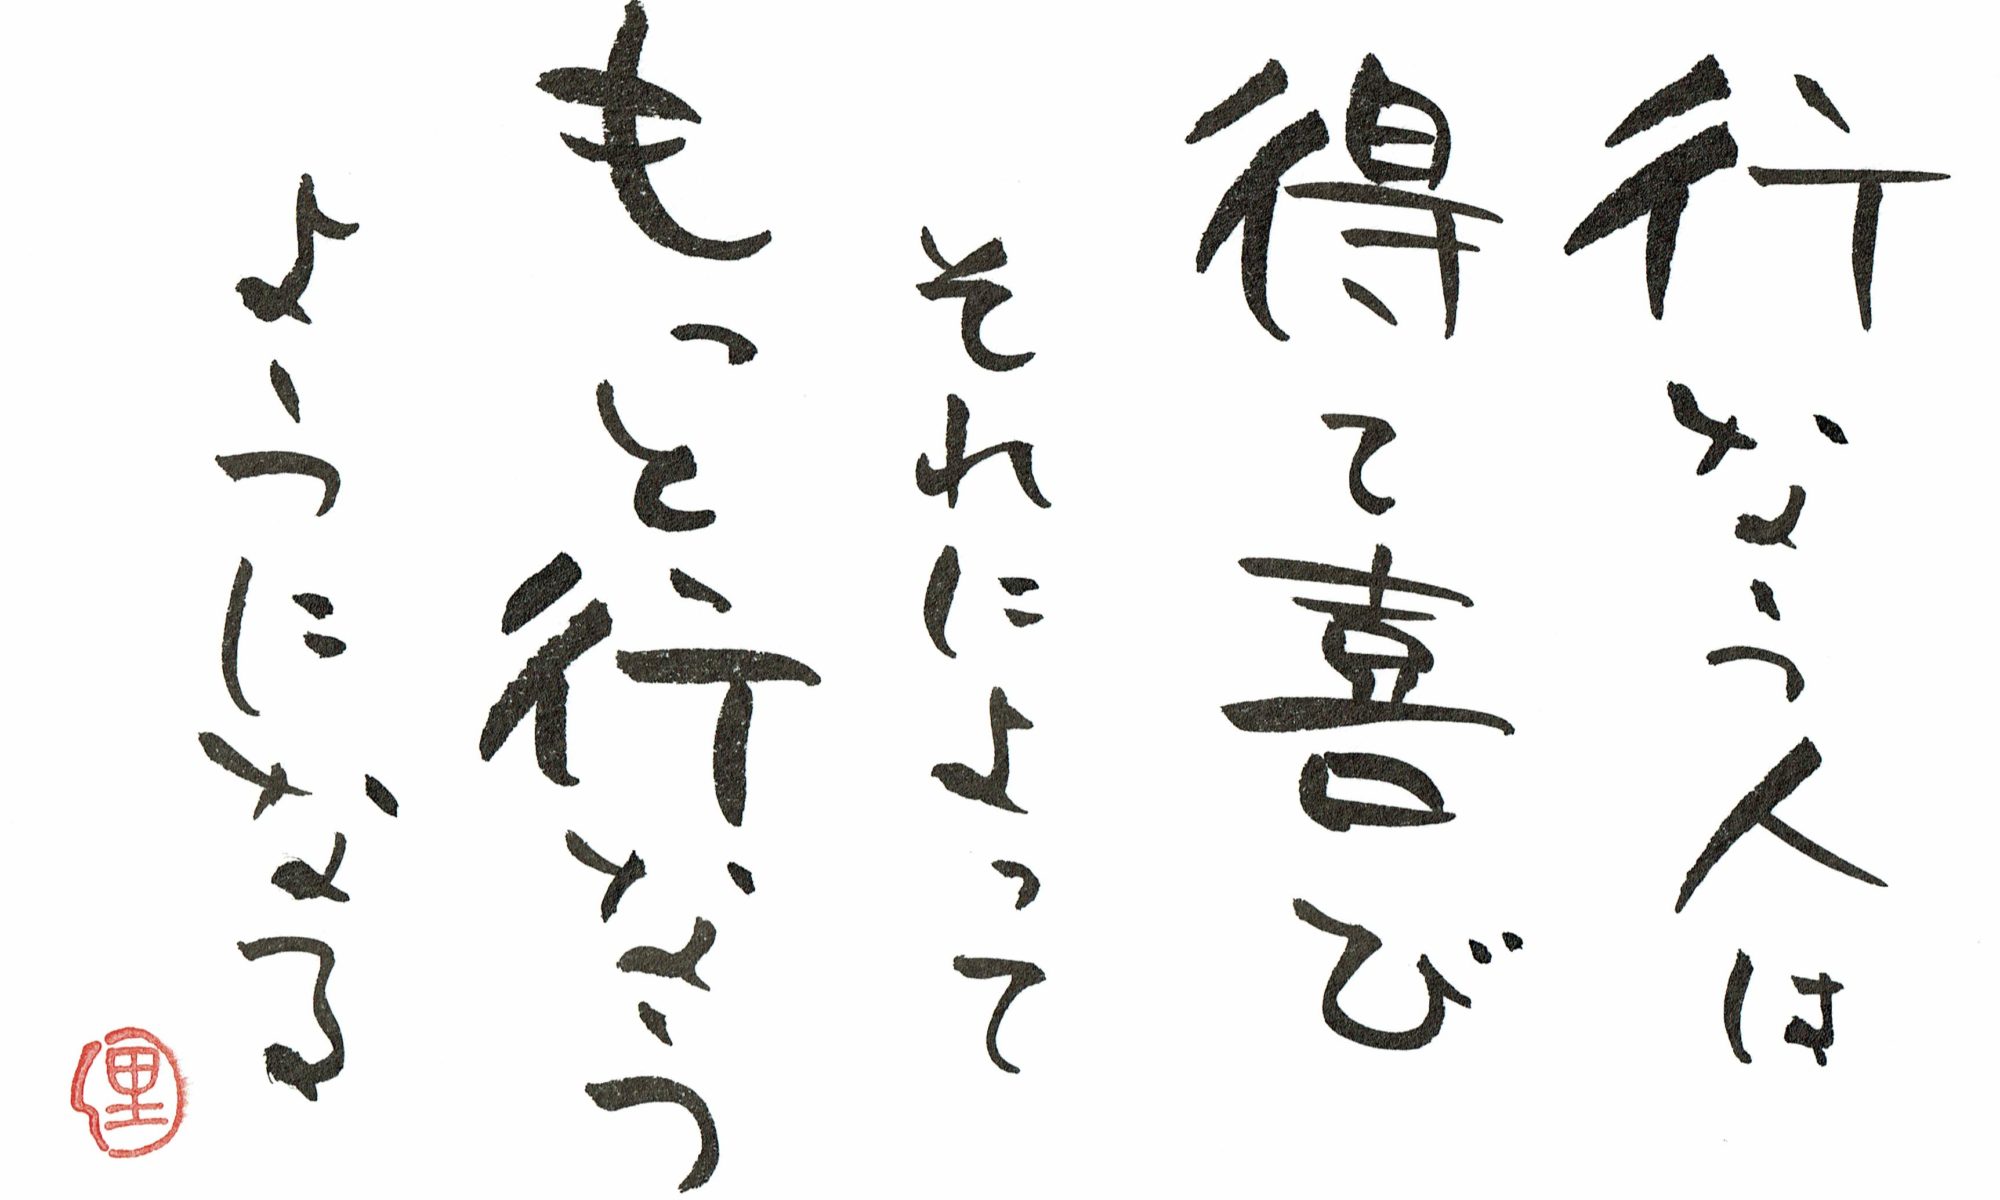 行なう人は
得て喜び
それによって
もっと行なう
ようになる
俚